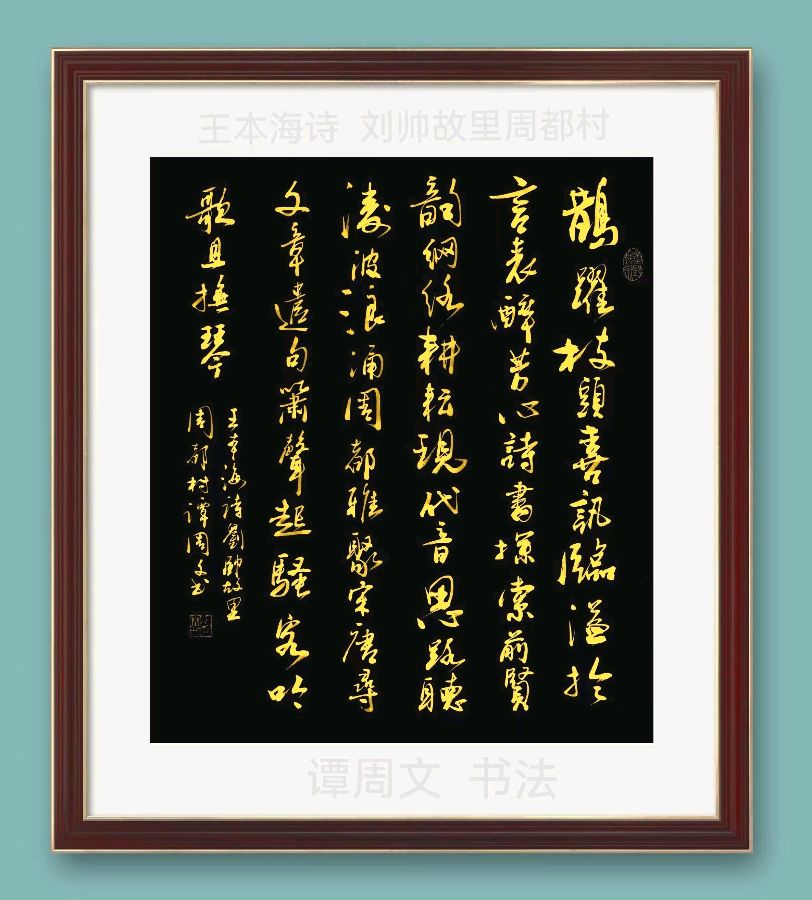 王本海诗 刘帅故里周都村
鵲躍枝頭喜訊臨溢於
言表醉芳心詩書探索前賢
韵網絡耕耘現代音思路聽
濤波浪涌周都雅聚宋唐尋
文章遣句簫聲起騷客吟
歌且撫琴
王本海诗劉帥故里
周都村谭周文书
谭周文 书法